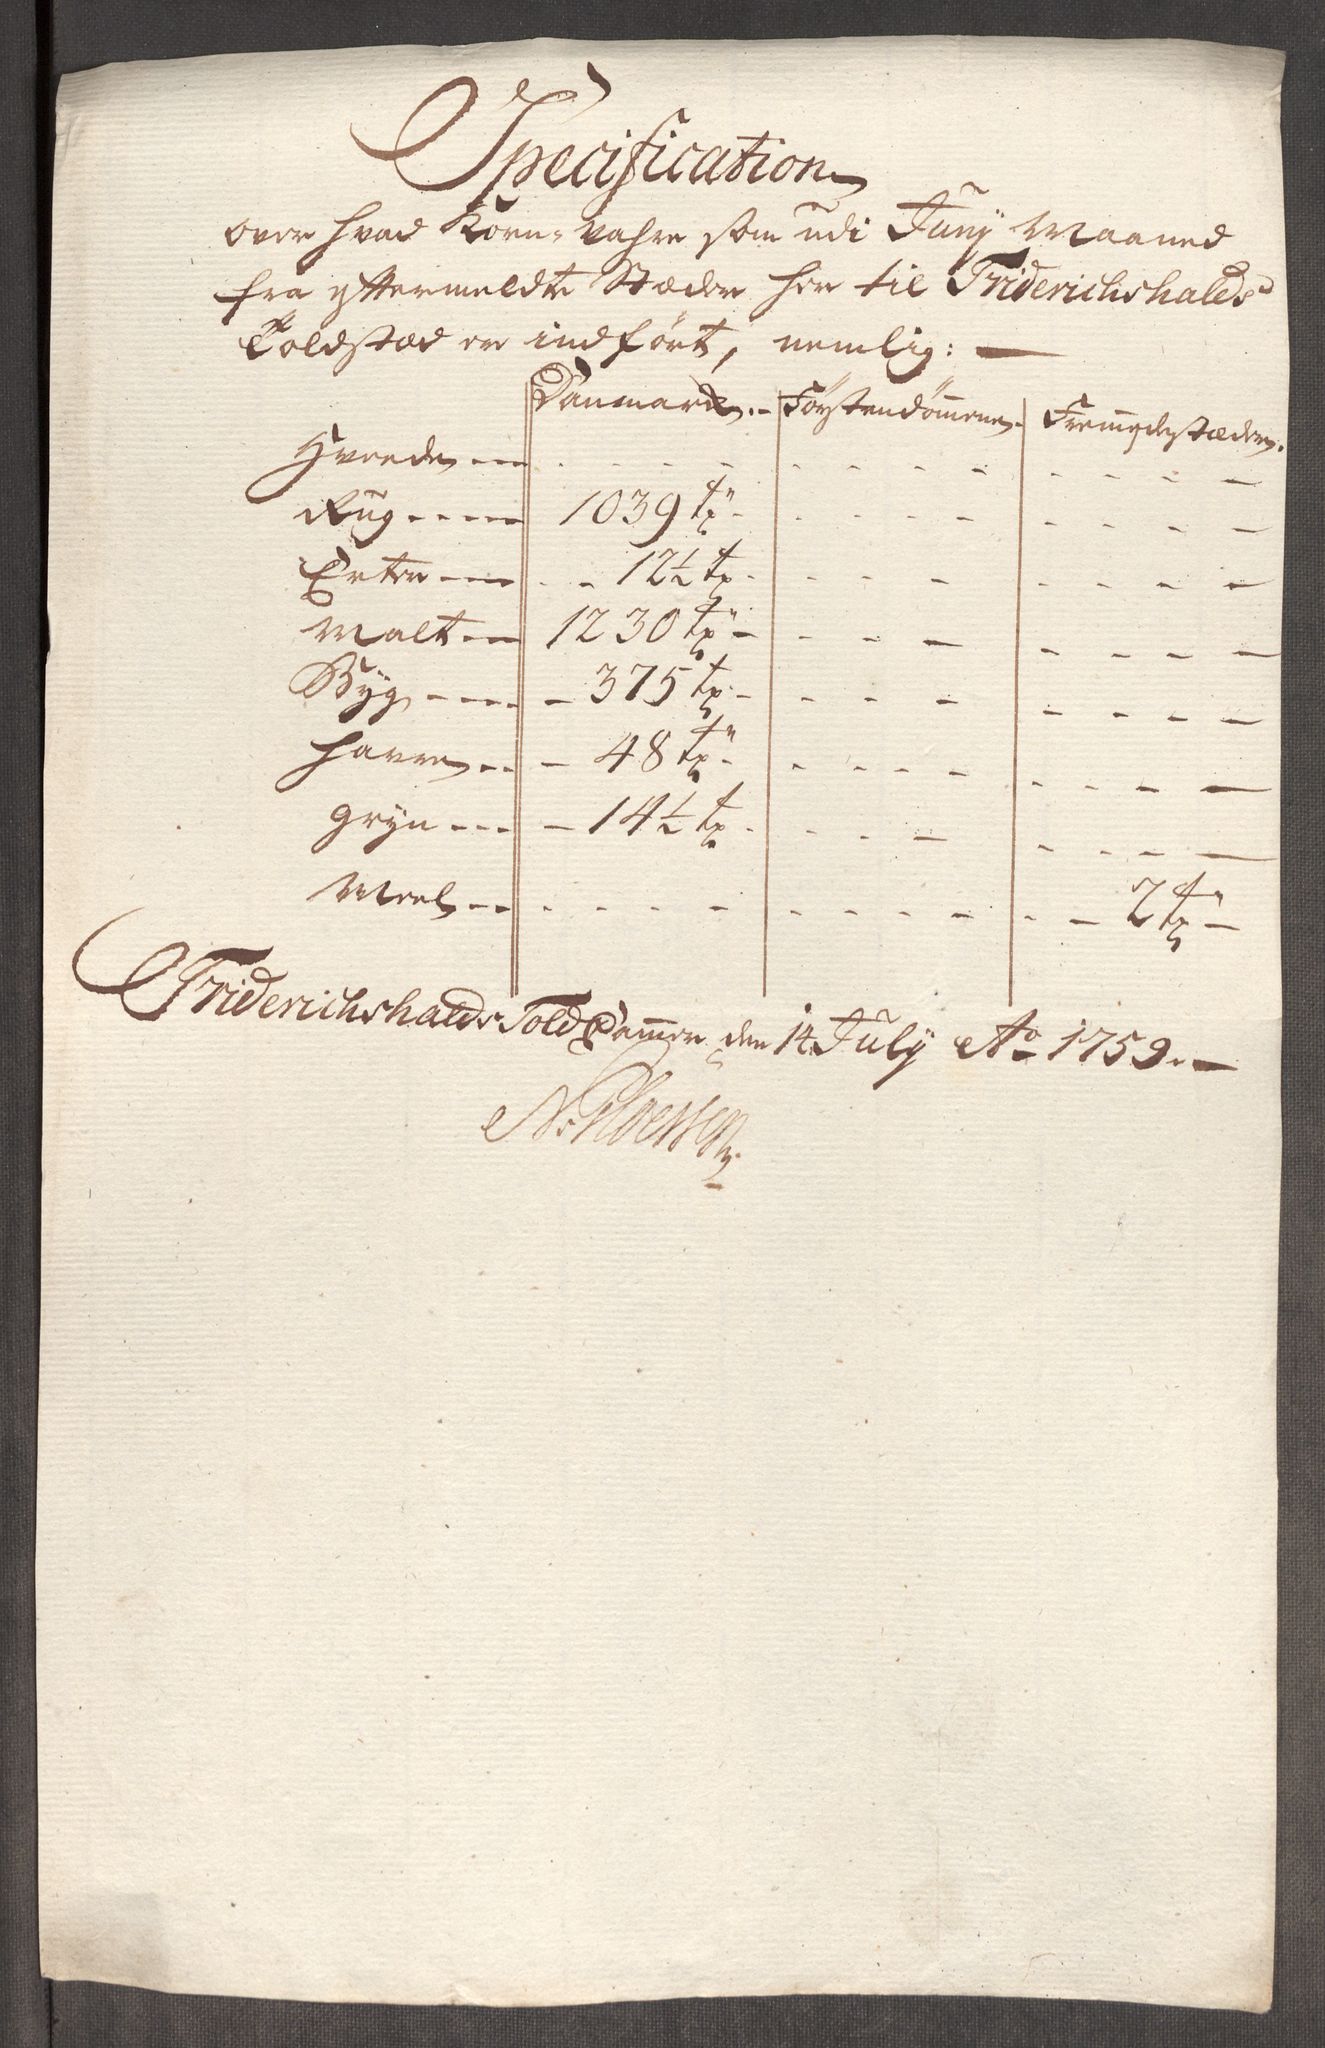 Specification
over hvad Korn-Vahre som udi Juny Maaned
fra eftermeldte Stæder her til Friderichshalds
Toldsted er indført, nemlig: —
Danmarck. - Førstendømmene. Fremmede stæder.
Hvede --- . - - - - - - - - - - - -
Rug ----- 1039 tr - - - - - - - - -
Erter ---- - - 12½ tr - - - - - - - -
Malt -- 1230 tr - - - - - - - -
Byg ---- - 375 tr - - - - - - - -
Havre -- - 48 tr - - - - - - - - -
Gryn --- - 14½ tr - - - - - - - -
Meel -- - - - - - - - - - - - 2 tr -
Friderichshalds Told Cammer den 14 July Ao 1759. —